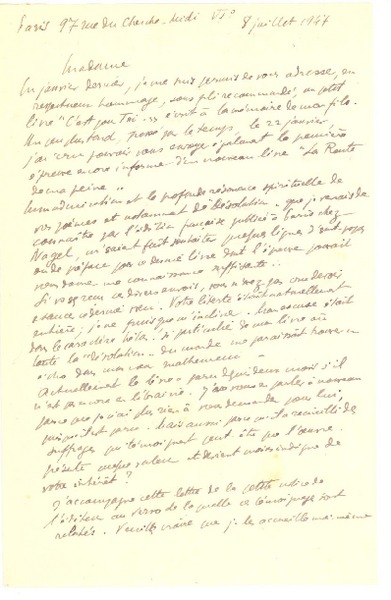 Paris 97 rue du Cherche-Midi VIº 8 juillet 1947
Madame
En janvier dernier, je me suis permis de vous adresser, en
respectueux hommage, sous pli recommandé, un petit
livre "C'est pour toi" écrit à la mémoire de mon fils.
Un peu plus tard, pressé par le temps, le 22 janvier,
j'ai cru pouvoir vous envoyer également la première
épreuve encore informe d'un nouveau livre "La Route
de ma peine".
L'admiration et la profonde résonance spirituelle de
vos poèmes et notamment de Désolation que je venais de
connaître par l'édition française publiée à Paris chez
Nagel, m'avaient fait souhaiter quelques lignes d'
ou de préface pour ce dernier livre dont l'épreuve pouvait
vous donner une connaissance suffisante.
Si vous reçu ces divers envois, vous n'avez pas cru devoir
Votre liberté était naturellement
entière; je ne puis que m'incliner. Mon excuse était
dans le caractère si particulier de mon livre où
toute la "désolation" du monde me paraissait trouver un
écho dans mon malheur.
Actuellement le livre a paru depuis deux mois s'il
n'est pas encore en librairie. J'ose vous en parler à nouveau
parce que je n'ai plus rien à vous demander pour lui,
puisqu'il est paru. Mais aussi parce qu'il a recueilli des
suffrages qui témoignent peut-être que l'œuvre
présente quelque valeur et devient moins indigne de
votre intérêt?
J'accompagne cette lettre de la petite notice de
l'éditeur au verso de laquelle ces témoignages sont
relatés. Veuillez croire que je les accueille moi-même